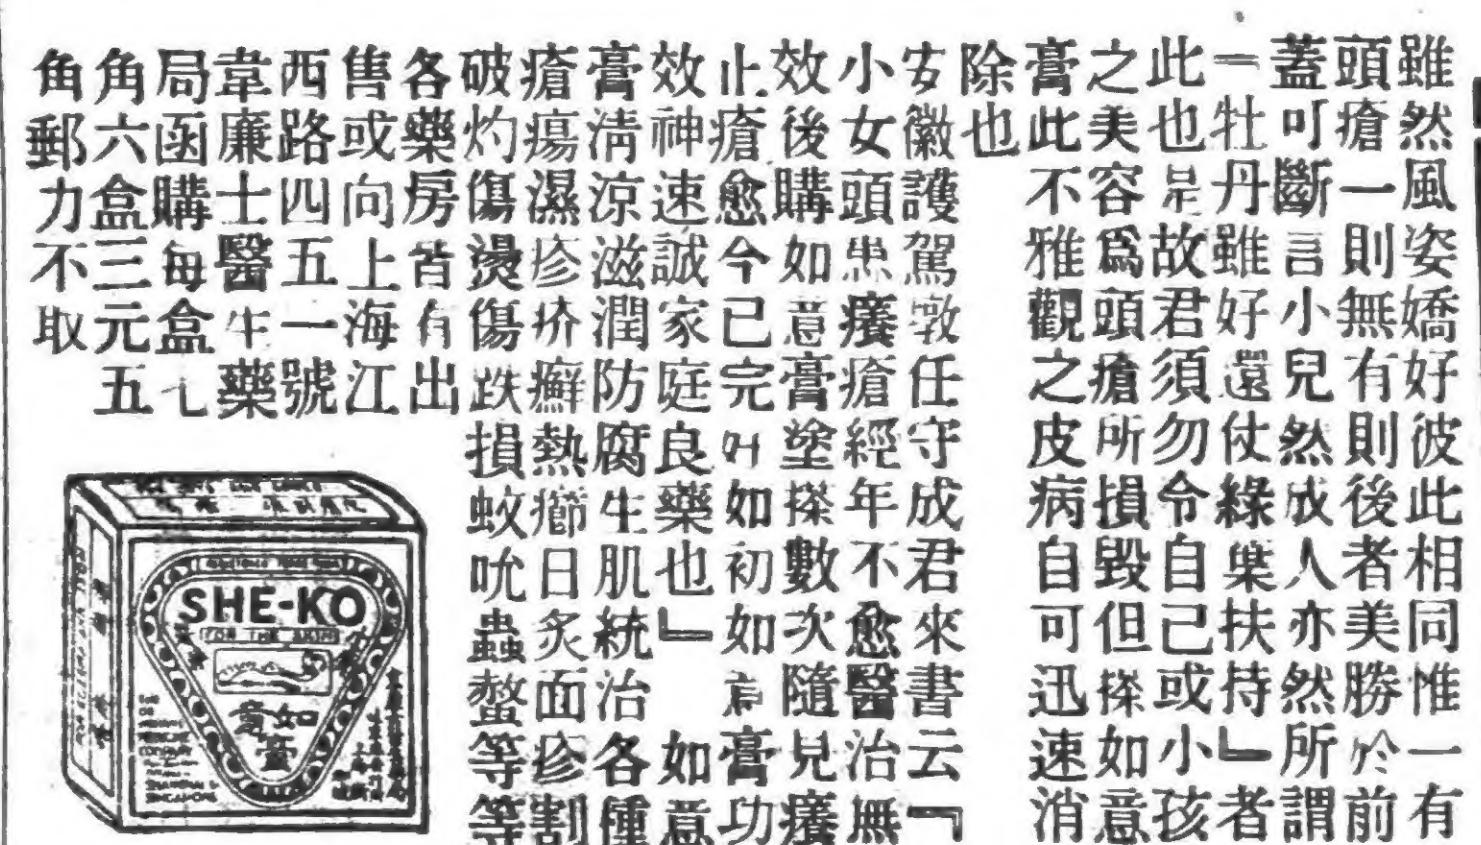 雖然風姿嬌好彼此相同惟一有
頭瘡一則無有則後者美勝於前
蓋可斷言小兒然成人亦然所謂
『牡丹雖好還仗綠葉扶持』者
此也是故君須勿令自己或小孩
之美容爲頭瘡所損毀但搽如意
膏此不雅觀之皮病自可迅速消
除也
安徽護駕墩任守成君來書云『
小女頭患癢瘡經年不愈醫治無
效後購如意膏塗搽數次隨見癢
止瘡愈今已完好如初如意膏功
效神速誠家庭良藥也』 如意
膏清涼滋潤防腐生肌統治各種
瘡瘍濕疹疥癬熱癤日炙面疹割
破灼傷燙傷跌損蚊吮蟲螫等等
各藥房皆有出
售或向上海江
西路四五一號
韋廉士醫生藥
局函購每盒七
角六盒三元五
角郵力不取
SHE-KO
FOR THE SKIN
如意膏